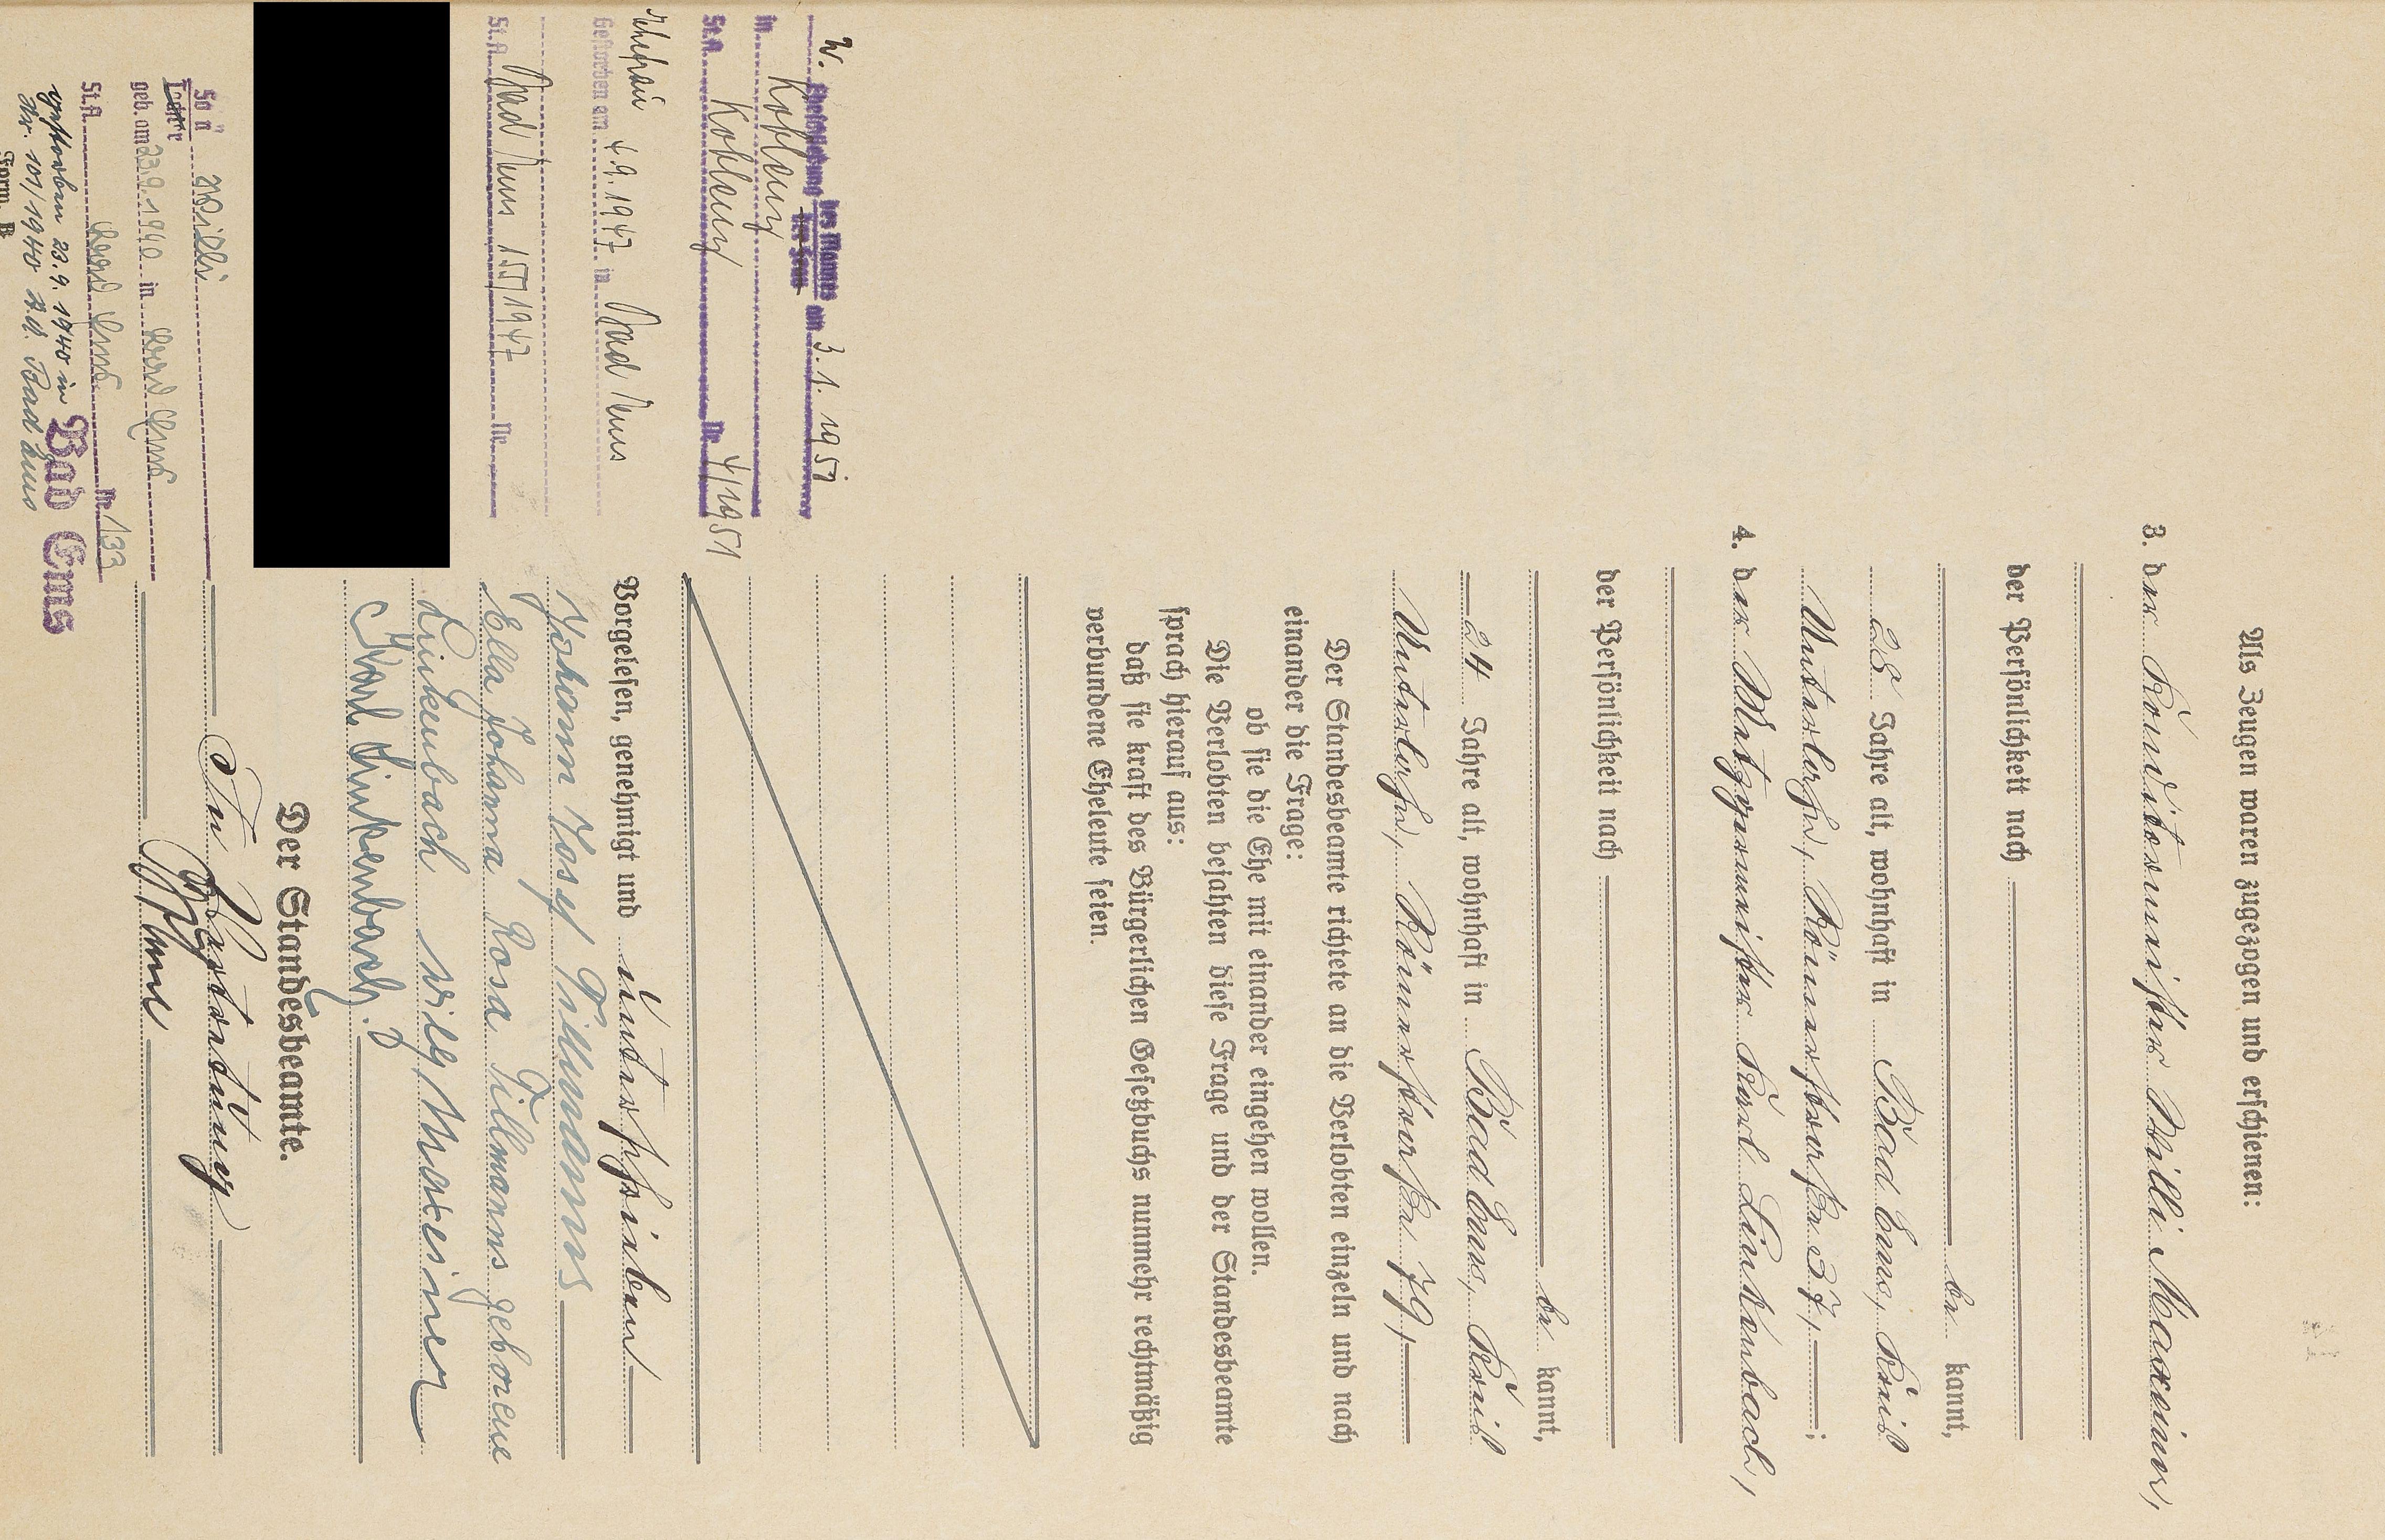 Als Zeugen waren zugezogen und erschienen:
3. der Konditormeister Willi Maxeiner,
der Persönlichkeit nach
be kannt,
28 Jahre alt, wohnhaft in Bad Ems, Kreis
Unterlahn, Römerstraße 37,
4. der Metzgermeister Karl Linkenbach,
der Persönlichkeit nach
be kannt,
24 Jahre alt, wohnhaft in Bad Ems, Kreis
Unterlahn, Römerstraße 79,
Der Standesbeamte richtete an die Verlobten einzeln und nach
einander die Frage:
ob sie die Ehe mit einander eingehen wollen.
Die Verlobten bejahten diese Frage und der Standesbeamte
sprach hierauf aus:
daß sie kraft des Bürgerlichen Gesetzbuchs nunmehr rechtmäßig
verbundene Eheleute seien.
Vorgelesen, genehmigt und unterschrieben
Johann Josef Tillmanns
Ella Johanna Rosa Tillmanns geborene
Linkenbach Willy Maxeiner
Karl Linkenbach.
Der Standesbeamte.
In Vertretung
W. Eheschließung des Mannes am 3.1.1951
der Frau
in Koblenz
St.A. Koblenz Nr. 4/1951
Ehefrau
Gestorben am 4.9.1947 in Bad Ems
St.A. Bad Ems 155/1947 Nr.
Sohn Willi
Tochter
geb. am 23.9.1940 in Bad Ems
St.A. Bad Ems Nr. 133
verstorben 23.9.1940 in Bad Ems
Nr. 101/1940 St.A. Bad Ems
Form. B